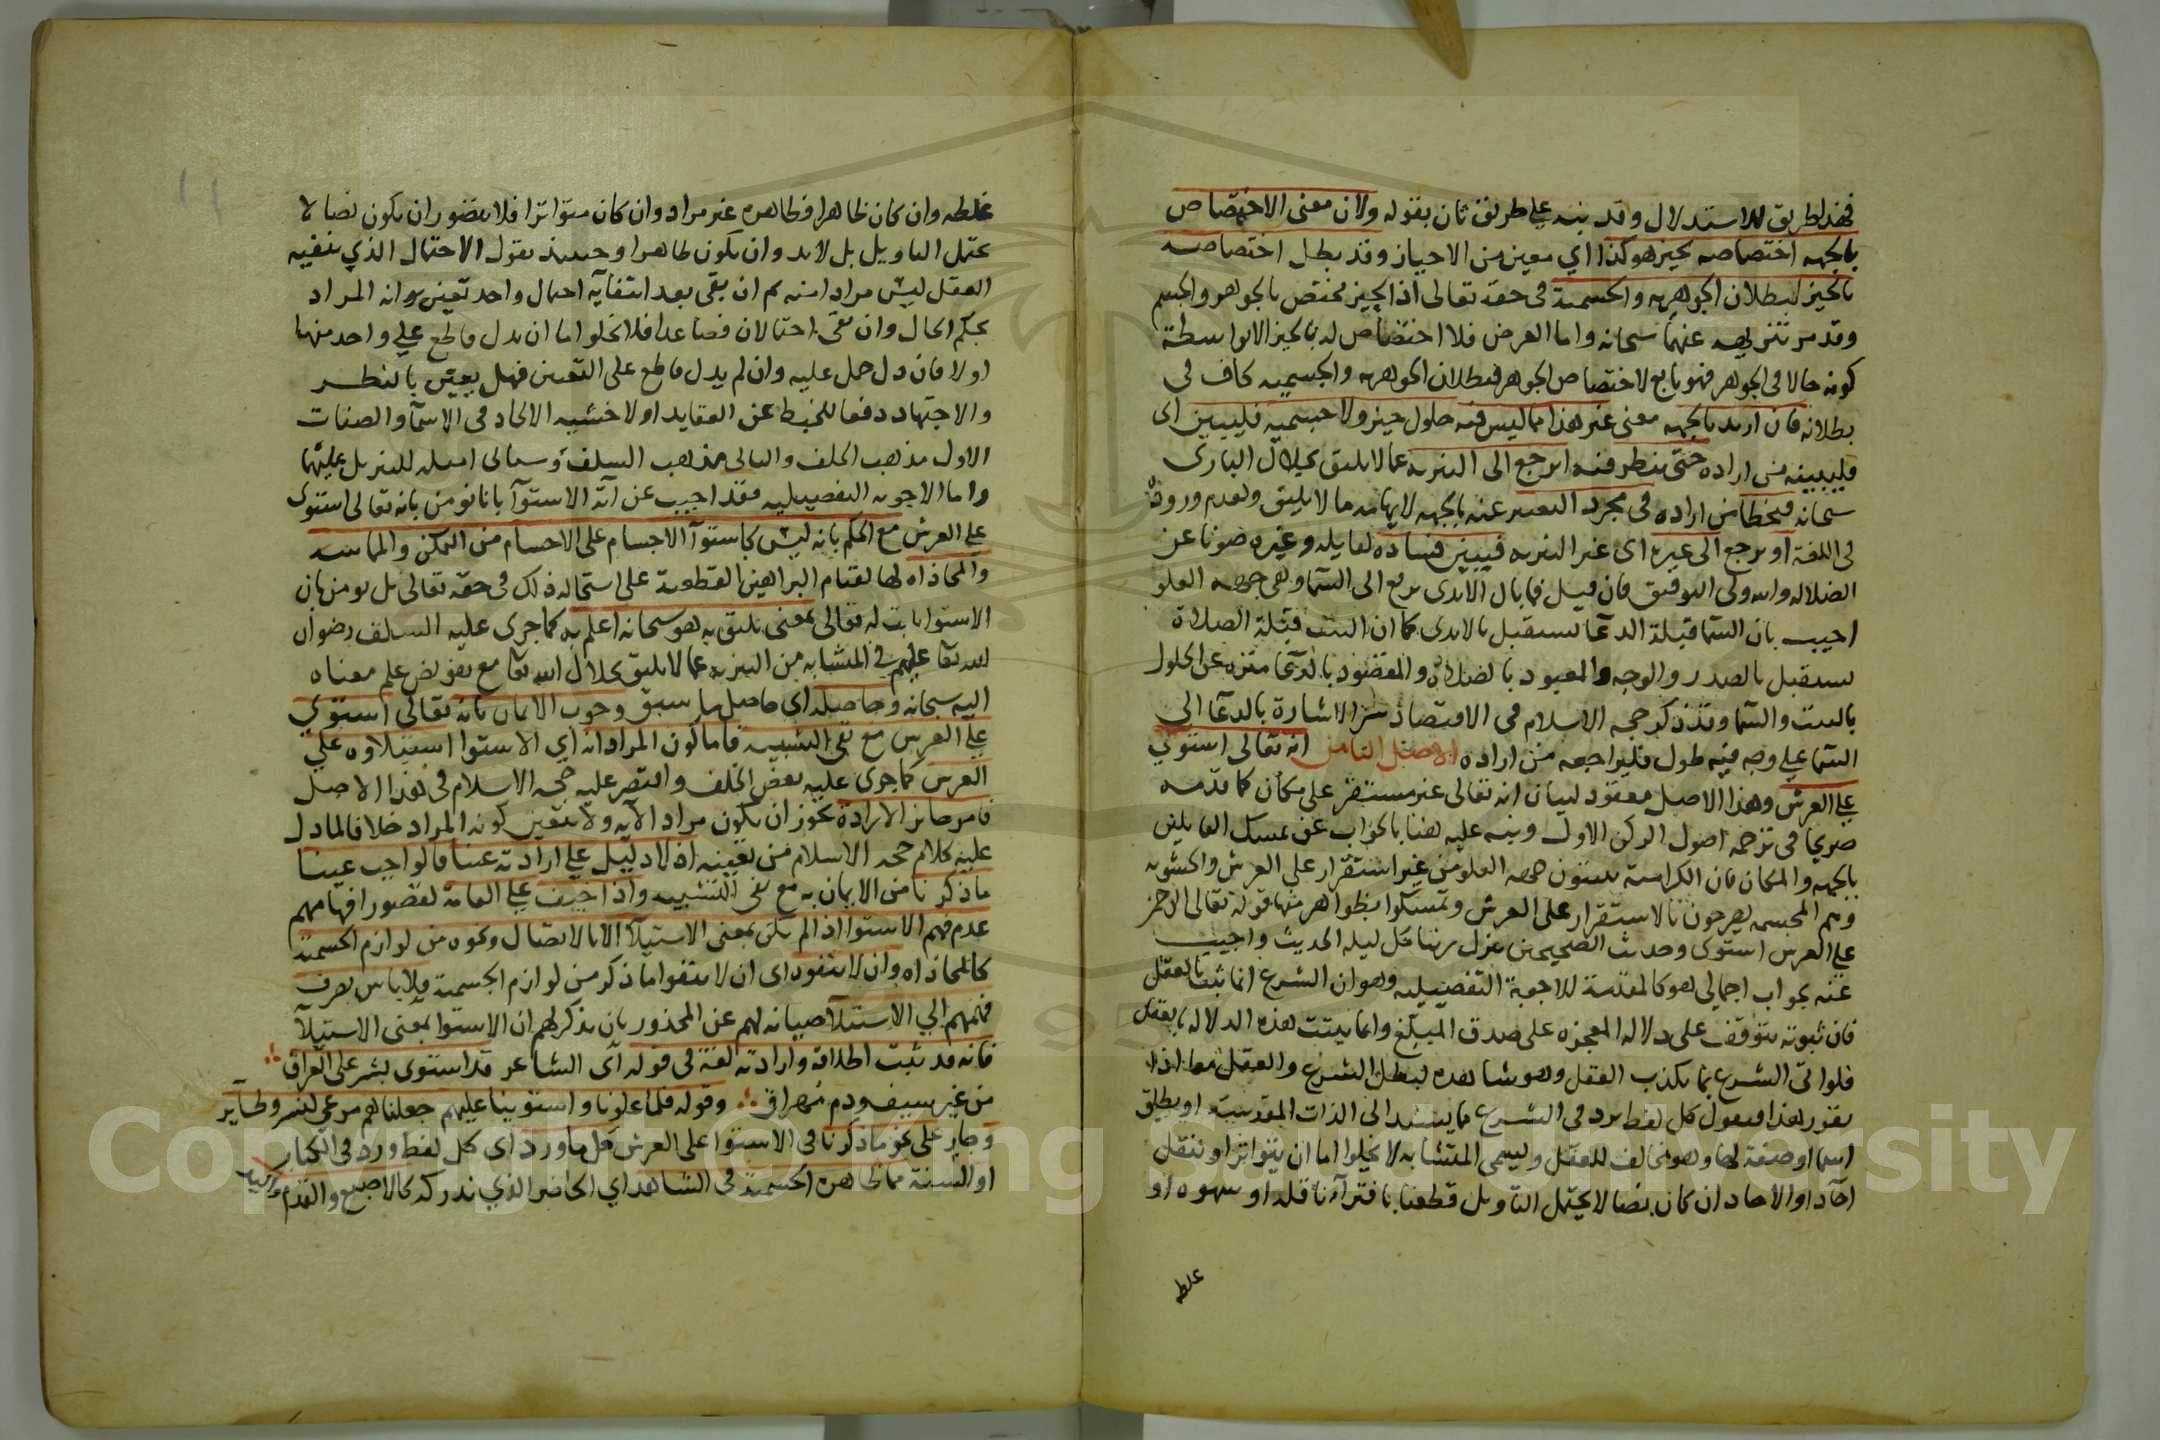 فهذا طريق للاستدلال وقد نبه على طريق ثان بقوله ولان معنى الاختصاص
بالجهة اختصاصه بحيز هو كذا اي معين من الاحياز وقد بطل اختصاصه
بالحيز لبطلان الجوهريه والجسمية في حقه تعالى اذ الحيز مختص بالجوهر والجسم
وقد مر تنزيهه عنهما سبحانه واما العرض فلا اختصاص له بالحيز الا بواسطة
كونه حالا في الجوهر فهو تابع لاختصاص الجوهر فبطلان الجوهريه والجسميه كاف في
بطلانه فان اريد بالجهه معنى غير هذا مما ليس فيه حلول حيز ولا جسميه فليبين اي
فليبينه من اراده حتى ينظر فيه ايرجع الى التنزيه عما لا يليق بجلال الباري
سبحانه فيخطا من اراده في مجرد التعبير عنه بالجهه لايهامه ما لا يليق ولعدم وروده
في اللغة او يرجع الى غيره اى غير التنزيه فيبين فساده لقايله وغيره صونا عن
الضلاله والله ولى التوفيق فان قيل فما بال الايدى ترفع الى السما وهى جهه العلو
اجيب بان السما قبلة الدعا تستقبل بالايدى كما ان البيت قبلة الصلاة
يستقبل بالصدر والوجه والمعبود بالصلاة والمقصود بالدعا منزه عن الحلول
بالبيت والسما وقد ذكر حجه الاسلام في الاقتصاد سر الاشارة بالدعا الى
السما على وجه فيه طول فليراجعه من اراده الاصل الثامن انه تعالى استوى
على العرش وهذا الاصل معقود لبيان انه تعالى غير مستقر على مكان كما قدمه
صريحا في ترجمه اصول الركن الاول ونبه عليه هنا بالجواب عن تمسك القايلين
بالجهه والمكان فان الكراميه يثبتون جهه العلو من غير استقرار على العرش والحشويه
وهم المجسمه يصرحون بالاستقرار على العرش وتمسكوا بظواهر منها قوله تعالى الرحمن
على العرش استوى وحديث الصحيحين ينزل ربنا كل ليله الحديث واجيب
عنه بجواب اجمالى هو كالمقدمة للاجوبة التفصيليه وهو ان الشرع انما ثبت بالعقل
فان ثبوته يتوقف على دلاله المعجزه على صدق المبلغ وانما يثبت هذه الدلاله بالعقل
فلو اتى الشرع بما يكذب العقل وهو شاهده لبطل الشرع والعقل معا اذا
تقرر هذا فنقول كل لفظ يرد في الشرع مما يسند الى الذات المقدسة او يطلق
اسما او صفة لها وهو مخالف للعقل ويسمى المتشابه لا يخلوا اما ان يتواتر او ينقل
احادا والاحاد ان كان نصا لا يحتمل التاويل قطعنا بافتراء ناقله او سهوه او
غلطه
غلطه وان كان ظاهرا فظاهره غير مراد وان كان متواترا فلا يتصور ان يكون نصا لا
يحتمل التاويل بل لابد وان يكون ظاهرا وحينيذ نقول الاحتمال الذي ينفيه
العقل ليس مرادا منه ثم ان بقى بعد انتفايه احتمال واحد تعين انه المراد
بحكم الحال وان بقى احتمالان فصاعدا فلا يخلوا اما ان يدل قاطع على واحد منها
اولا فان دل حمل عليه وان لم يدل قاطع على التعيين فهل يعين بالنظر
والاجتهاد دفعا للخبط عن العقايد اولا خشيه الالحاد فى الاسما والصفات
الاول مذهب الخلف والثانى مذهب السلف وستاتى امثله للتنزيل عليهما
واما الاجوبه التفصيليه فقد اجيب عن آية الاستوآ بانا نومن بانه تعالى استوى
على العرش مع الحكم بانه ليس كاستوآ الاجسام على الاجسام من التمكن والمماسه
والمحاذاه لها لقيام البراهين القطعية على استحاله ذلك في حقه تعالى بل نومن بان
الاستوا ثابت له تعالى بمعنى يليق به هو سبحانه اعلم به كما جرى عليه السلف رضوان
الله تعا عليهم في المتشابه من التنزيه عما لا يليق بجلال الله تعا مع تفويض علم معناه
اليه سبحانه وحاصله اى حاصل ما سبق وجوب الايمان بانه تعالى استوى
على العرش مع نفى التشبيه فاما كون المراد انه اي الاستوا استيلاوه على
العرش كما جرى عليه بعض الخلف واقتصر عليه حجه الاسلام في هذا الاصل
فامر جايز الارادة يجوز ان يكون مراد الآيه ولا يتعين كونه المراد خلافا لما دل
عليه كلام حجه الاسلام من تعيينه اذ لا دليل على ارادته عينا فالواجب عينا
ما ذكرنا من الايمان به مع نفى التشبيه واذا خيف على العامة لقصور افهامهم
عدم فهم الاستوا اذا لم يكن بمعنى الاستيلآ الا بالاتصال ونحوه من لوازم الجسمية
كالمحاذاه وان لا ينفوه اى ان لا ينفوا ما ذكر من لوازم الجسمية فلا باس بصرف
فهمهم الي الاستيلآ صيانه لهم عن المحذور بان يذكر لهم ان الاستوا بمعنى الاستيلآ
فانه قد ثبت اطلاقه وارادته لغة فى قوله اى الشاعر قد استوى بشر على العراق
من غير سيف ودم مهراق وقوله فلما علونا واستوينا عليهم جعلناهم مرعى لنسر وطاير
وجار على نحو ما ذكرنا في الاستوا على العرش كل ما ورد اى كل لفظ ورد في الكتاب
او السنة مما ظاهره الجسمية في الشاهد اي الحاضر الذي ندركه كالاصبع والقدم واليد